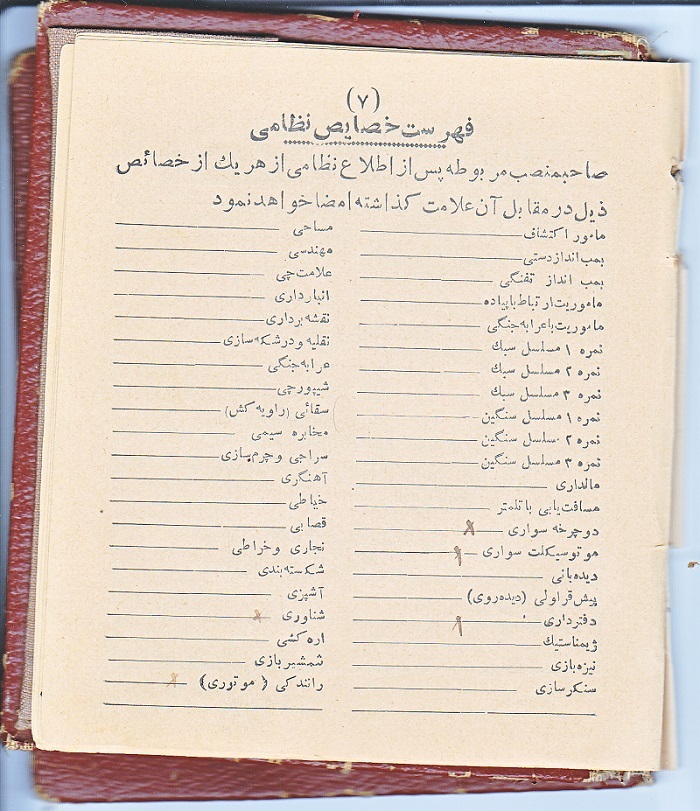 (۷)
فهرست خصایص نظامی
صاحبمنصب مربوطه پس از اطلاع نظامی از هر یك از خصائص
ذیل در مقابل آن علامت گذاشته امضا خواهد نمود
مامور اکتشاف
بمب انداز دستی
بمب انداز تفنگی
ماموریت ارتباط با پیاده
ماموریت با عرابه جنگی
نمره ۱ مسلسل سبك
نمره ۲ مسلسل سبك
نمره ۳ مسلسل سبك
نمره ۱ مسلسل سنگین
نمره ۲ مسلسل سنگین
نمره ۳ مسلسل سنگین
مالداری
مسافت یابی با تلمتر
دوچرخه سواری
موتوسیکلت سواری
دیده بانی
پیش قراولی (دیده روی)
دفترداری
ژیمناستیك
نیزه بازی
سنگر سازی
مساحی
مهندسی
علامت چی
انبارداری
نقشه برداری
نقلیه و درشکه سازی
عرابه جنگی
شیپورچی
سقائی (راویه کش)
مخابره سیمی
سراجی و چرم سازی
آهنگری
خیاطی
قصابی
نجاری وخراطی
شکسته بندی
آشپزی
شناوری
اره کشی
شمشیر بازی
رانندگی (موتوری)